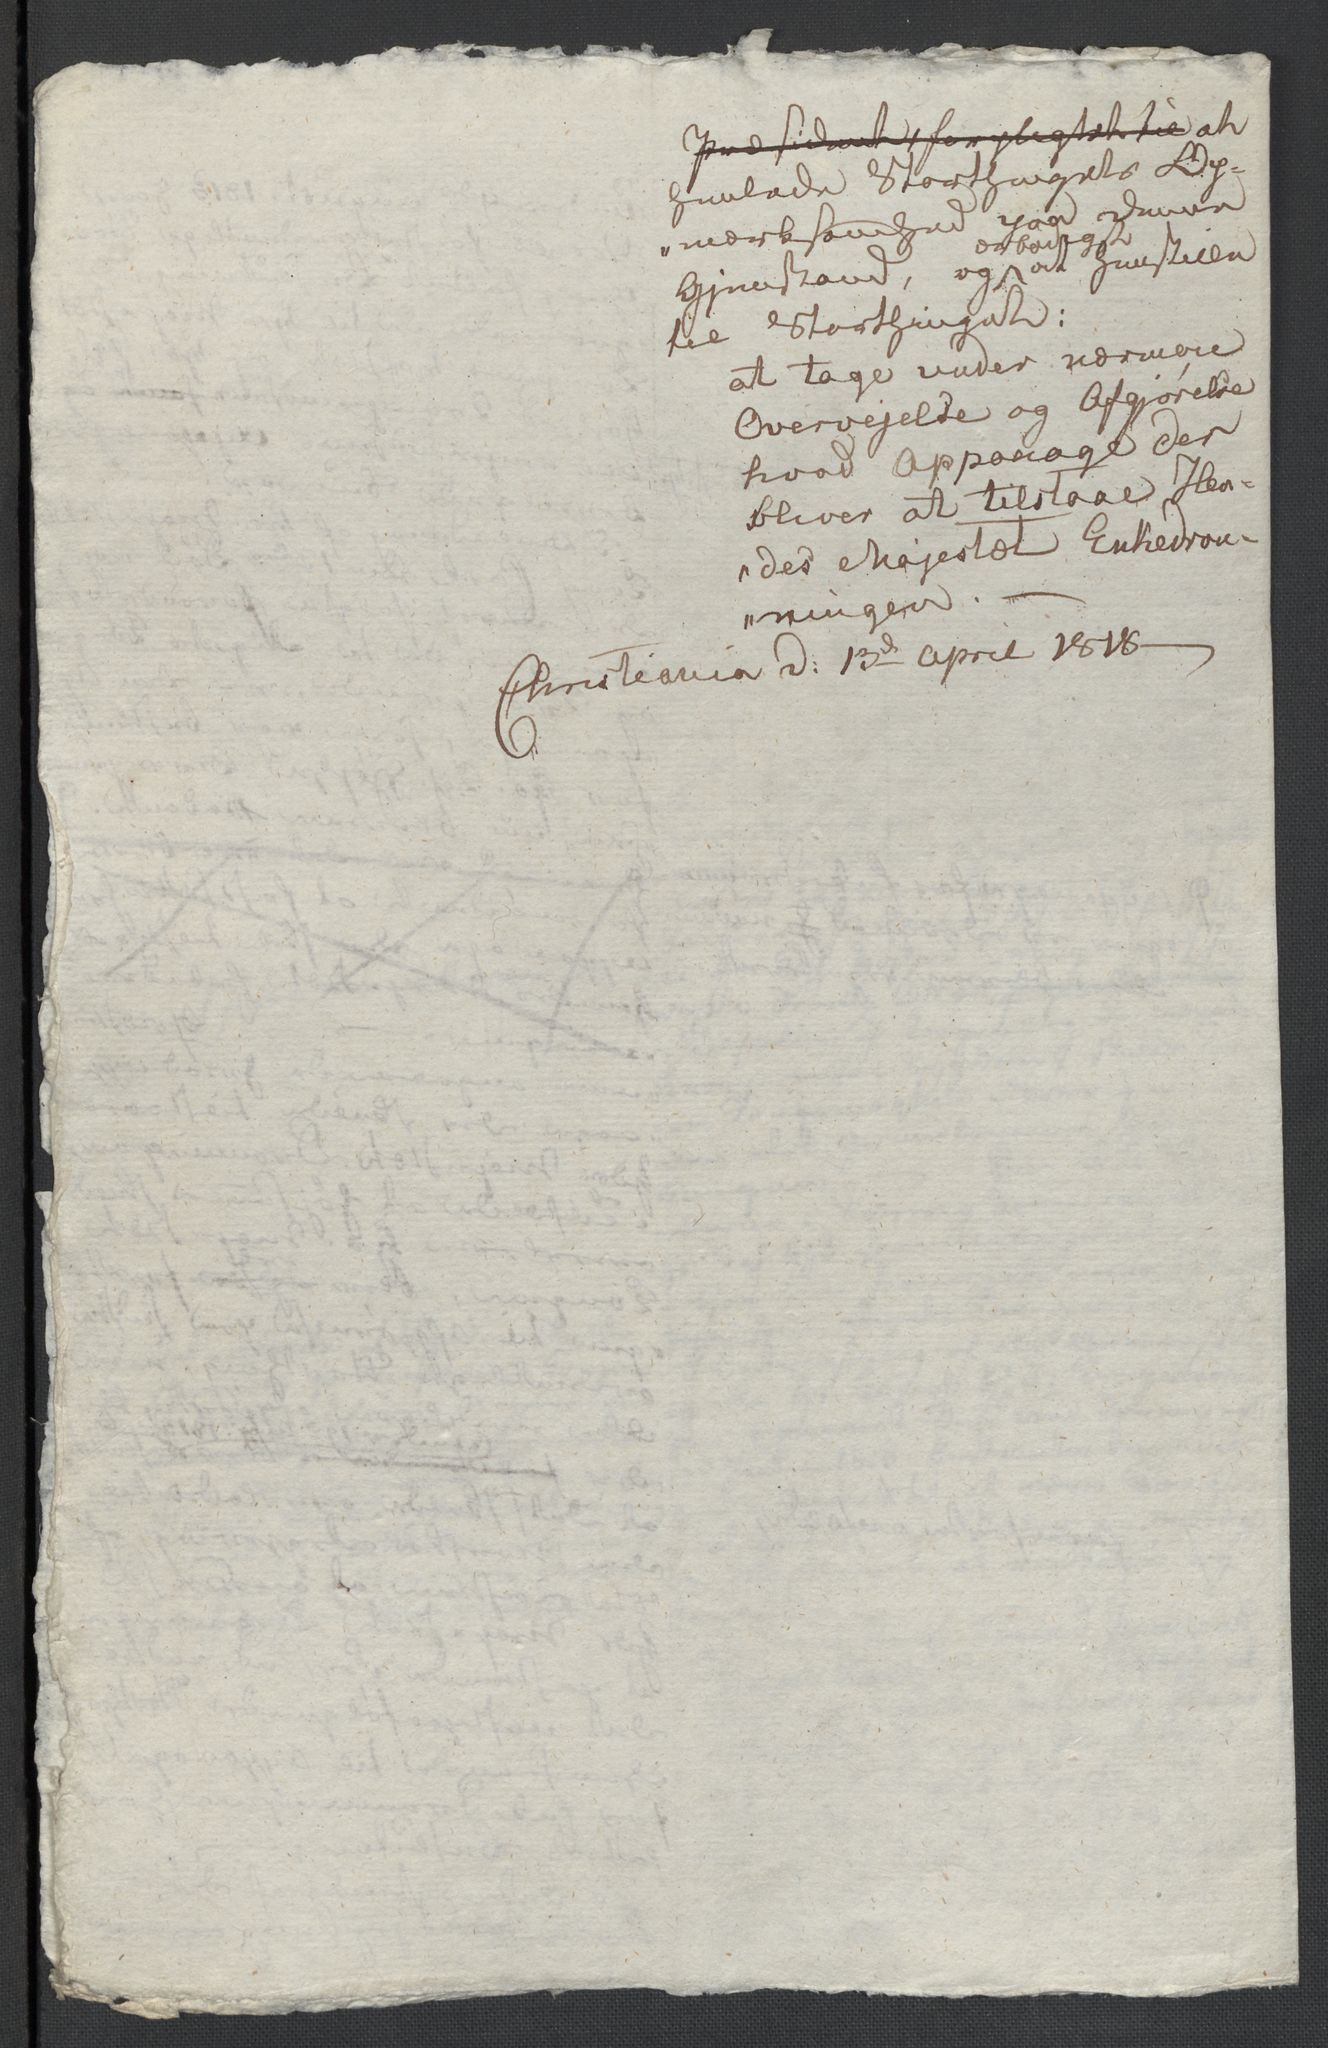 Præsident, forpligtet til at
henlede Storthingets Op-
„mærksomhed paa denne
Gjenstand, og ærbødigst at henstille
til Storthinget:
at tage under nærmere
Overvejelse og Afgjørelse
hvad Appanage der
bliver at tilstaae Hen-
„des Majestæt Enkedron-
„ningen. —
Christiania d: 13de April 1818